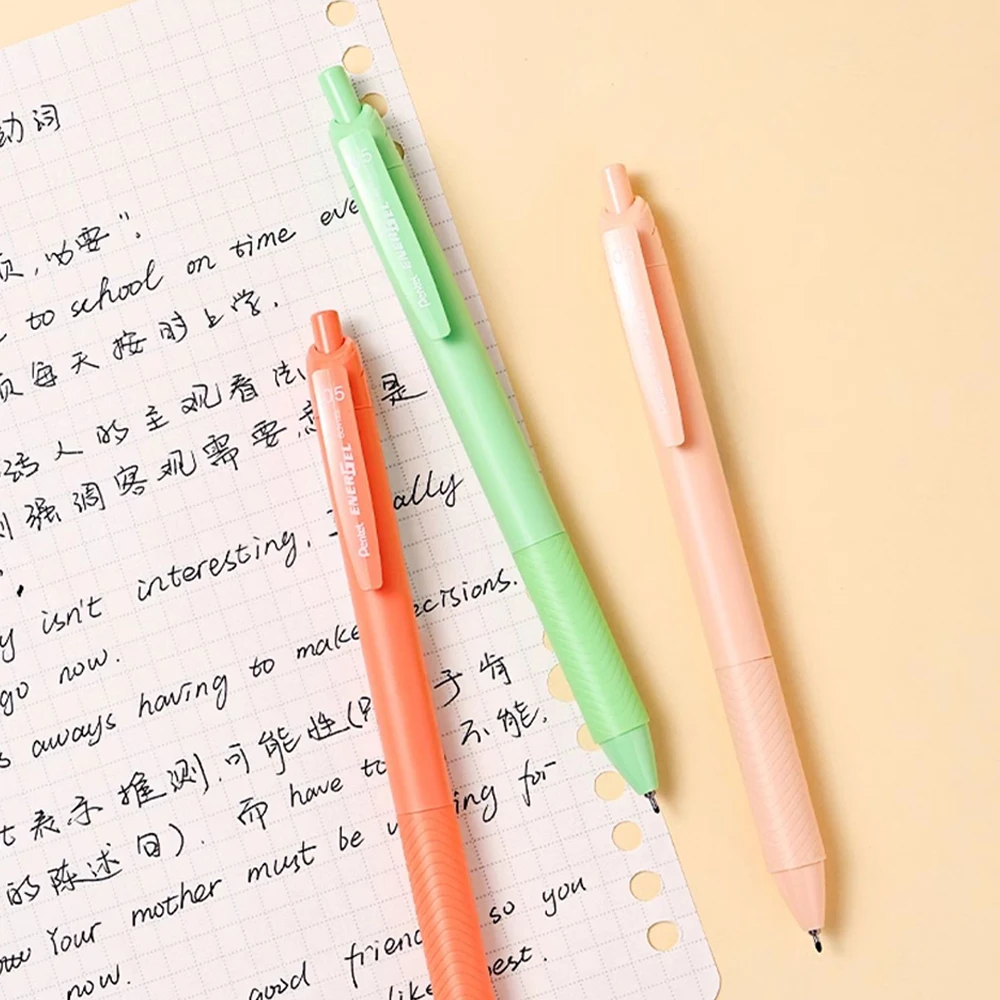 动词
须,必要".
to school on time eve
须每天按时上学.
话人的主观看法
则强调客观需要 是
isn't interesting. ally
go now.
s aways having to make ecisions.
t表示推测.可能性( 于肯
的陈述句). 而 have to 不能.
Your mother must be ing for
now.
good frien so you
like best.
05
ENERGEL
Pentel
05
ENERGEL
Pentel
05